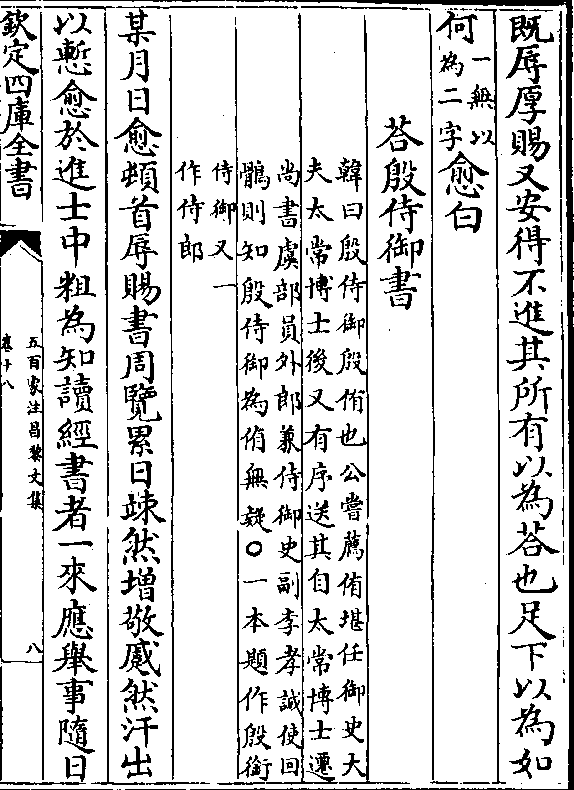 既辱厚賜又安得不進其所有以為荅也足下以為如
何一無以為二字愈白
荅殷侍御書
韓曰殷侍御殷侑也公嘗薦侑堪任御史大
夫太常博士後又有序送其自太常博士遷
尚書虞部員外郎兼侍御史副李孝誠使回
鶻則知殷侍御為侑無疑○一本題作殷銜
侍御又一
作侍郎
某月日愈頓首辱賜書周覽累日竦然增敬蹙然汗出
以慙愈於進士中粗為知讀經書者一來應舉事隨日
欽定四庫全書
五百家注昌黎文集
卷十八
八